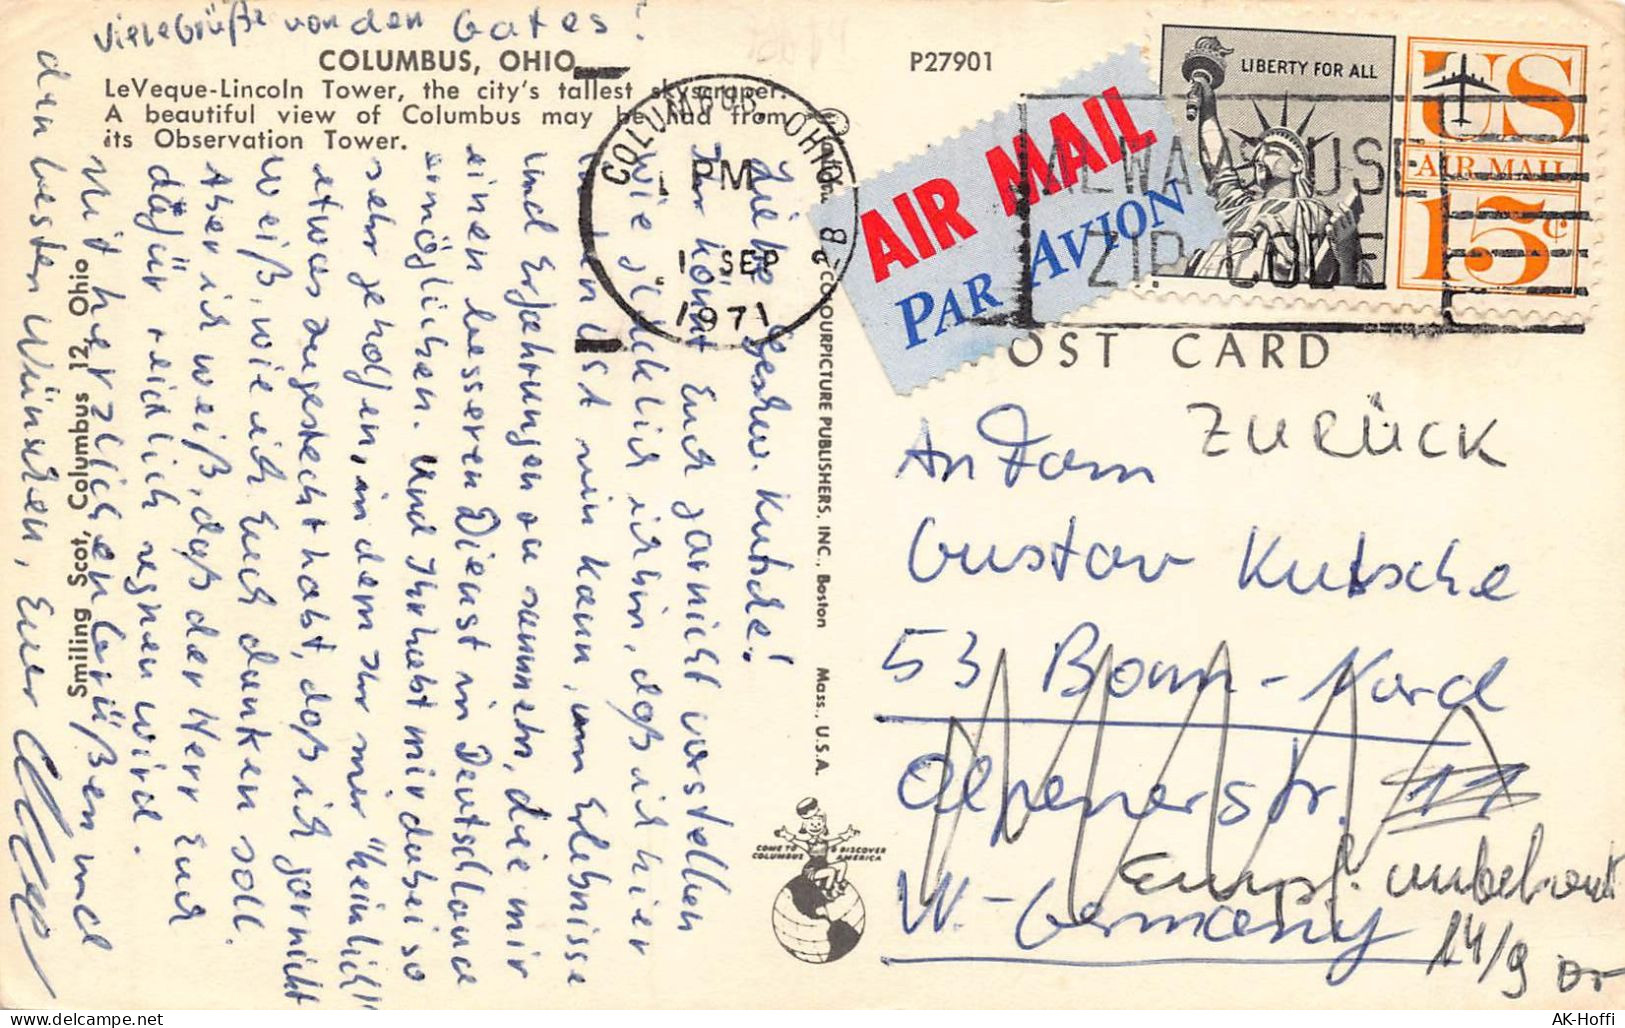 Viele Grüße von den Gates!
COLUMBUS, OHIO
LeVeque-Lincoln Tower, the city's tallest skyscraper.
A beautiful view of Columbus may be had from
its Observation Tower.
P27901
Liebe Geschw. Kutsche!
Ihr könnt Euch garnicht vorstellen
wie glücklich ich bin, daß ich hier
in den USA sein kann, um Erlebnisse
und Erfahrungen zu sammeln, die mir
einen besseren Dienst in Deutschland
ermöglichen. Und Ihr habt mir dabei so
sehr geholfen, indem Ihr mir "heimlich"
etwas zugesteckt habt, daß ich garnicht
weiß, wie ich Euch danken soll.
Aber ich weiß, daß der Herr Euch
dafür reichlich segnen wird.
Mit herzlichen Grüßen und
den besten Wünschen, Euer
Smiling Scot, Columbus 12, Ohio
COLOURPICTURE PUBLISHERS, INC., Boston Mass., U.S.A.
COLUMBUS, OHIO
PM
1 SEP
1971
AIR MAIL
PAR AVION
LIBERTY FOR ALL
US
AIR MAIL
15c
ALWAYS USE
ZIP CODE
POST CARD
COME TO & DISCOVER
COLUMBUS AMERICA
ZURÜCK
An Fam
Gustav Kutsche
53 Bonn-Nord
Olpenerstr. 11
W-Germany
Empf. unbekannt
14/9
AK-Hoffi